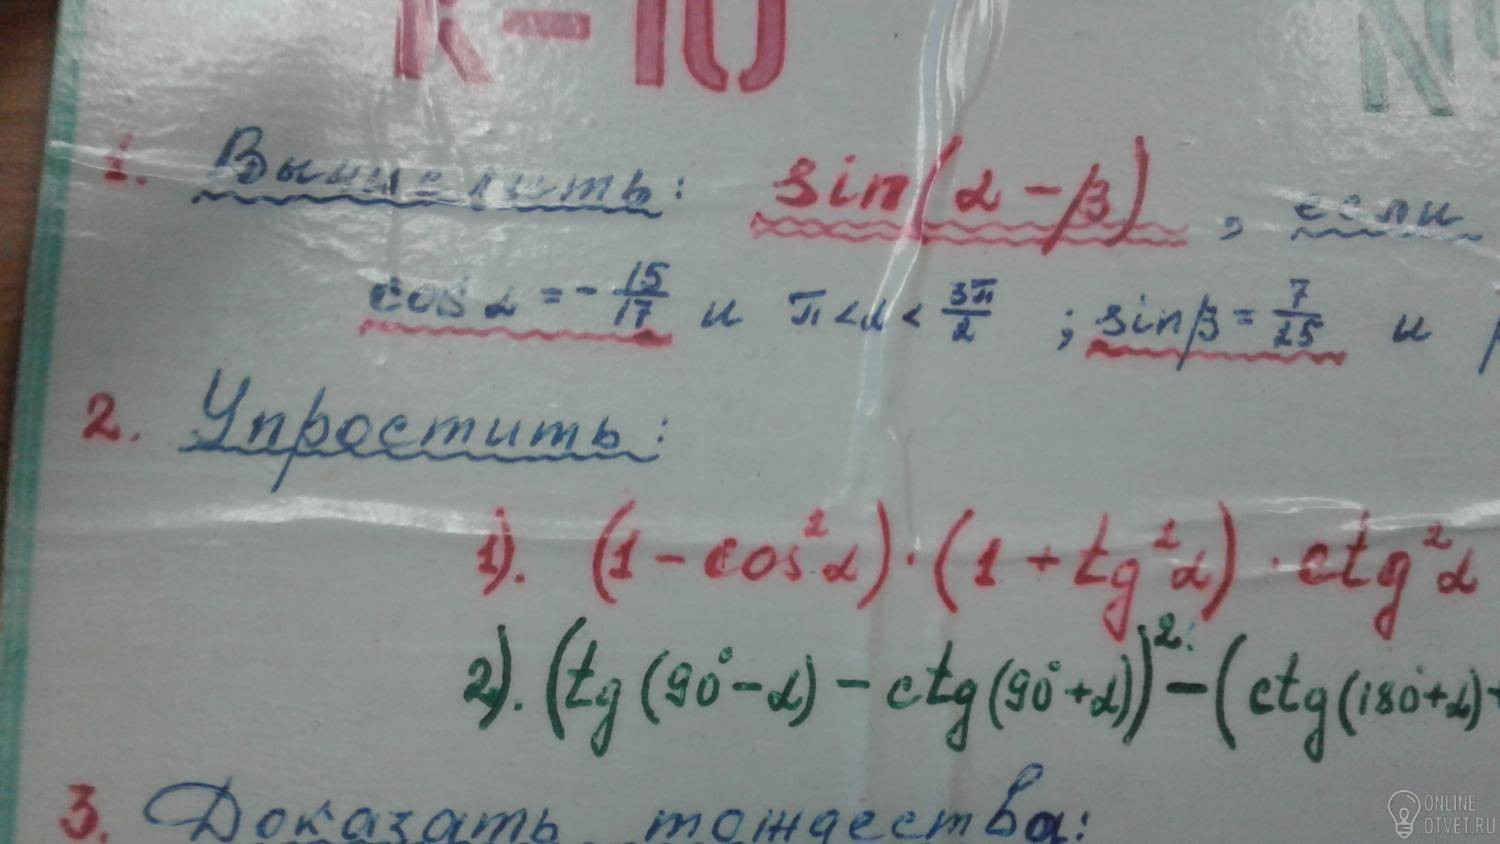 К-10
№
1. Вычислить: sin(α-β), если
cos α = -15/17 и π<α<3π/2 ; sin β = 7/25 и
2. Упростить:
1). (1-cos²α)·(1+tg²α)·ctg²α
2). (tg(90°-α)-ctg(90°+α))²-(ctg(180°+α)+
3. Доказать тождества:
ONLINE
OTVET.RU